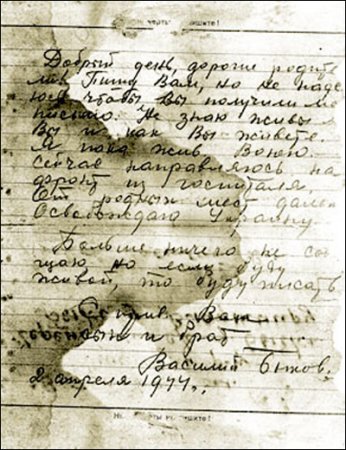 черты
шите!
Добрый день, дорогие родите
мои Пишу Вам, но не наде
юсь чтобы Вы получили мо
письмо. Не знаю живы л
Вы и как Вы живете.
Я пока жив. Воюю.
сейчас направляюсь на
фронт из госпиталя
От родных мест далек
Освобождаю Украину.
Больше ничего не соо
щаю но если буду
живой, то буду писать
Ваш
сын и брат
Василий Быков.
2 апреля 1944г.
шите!